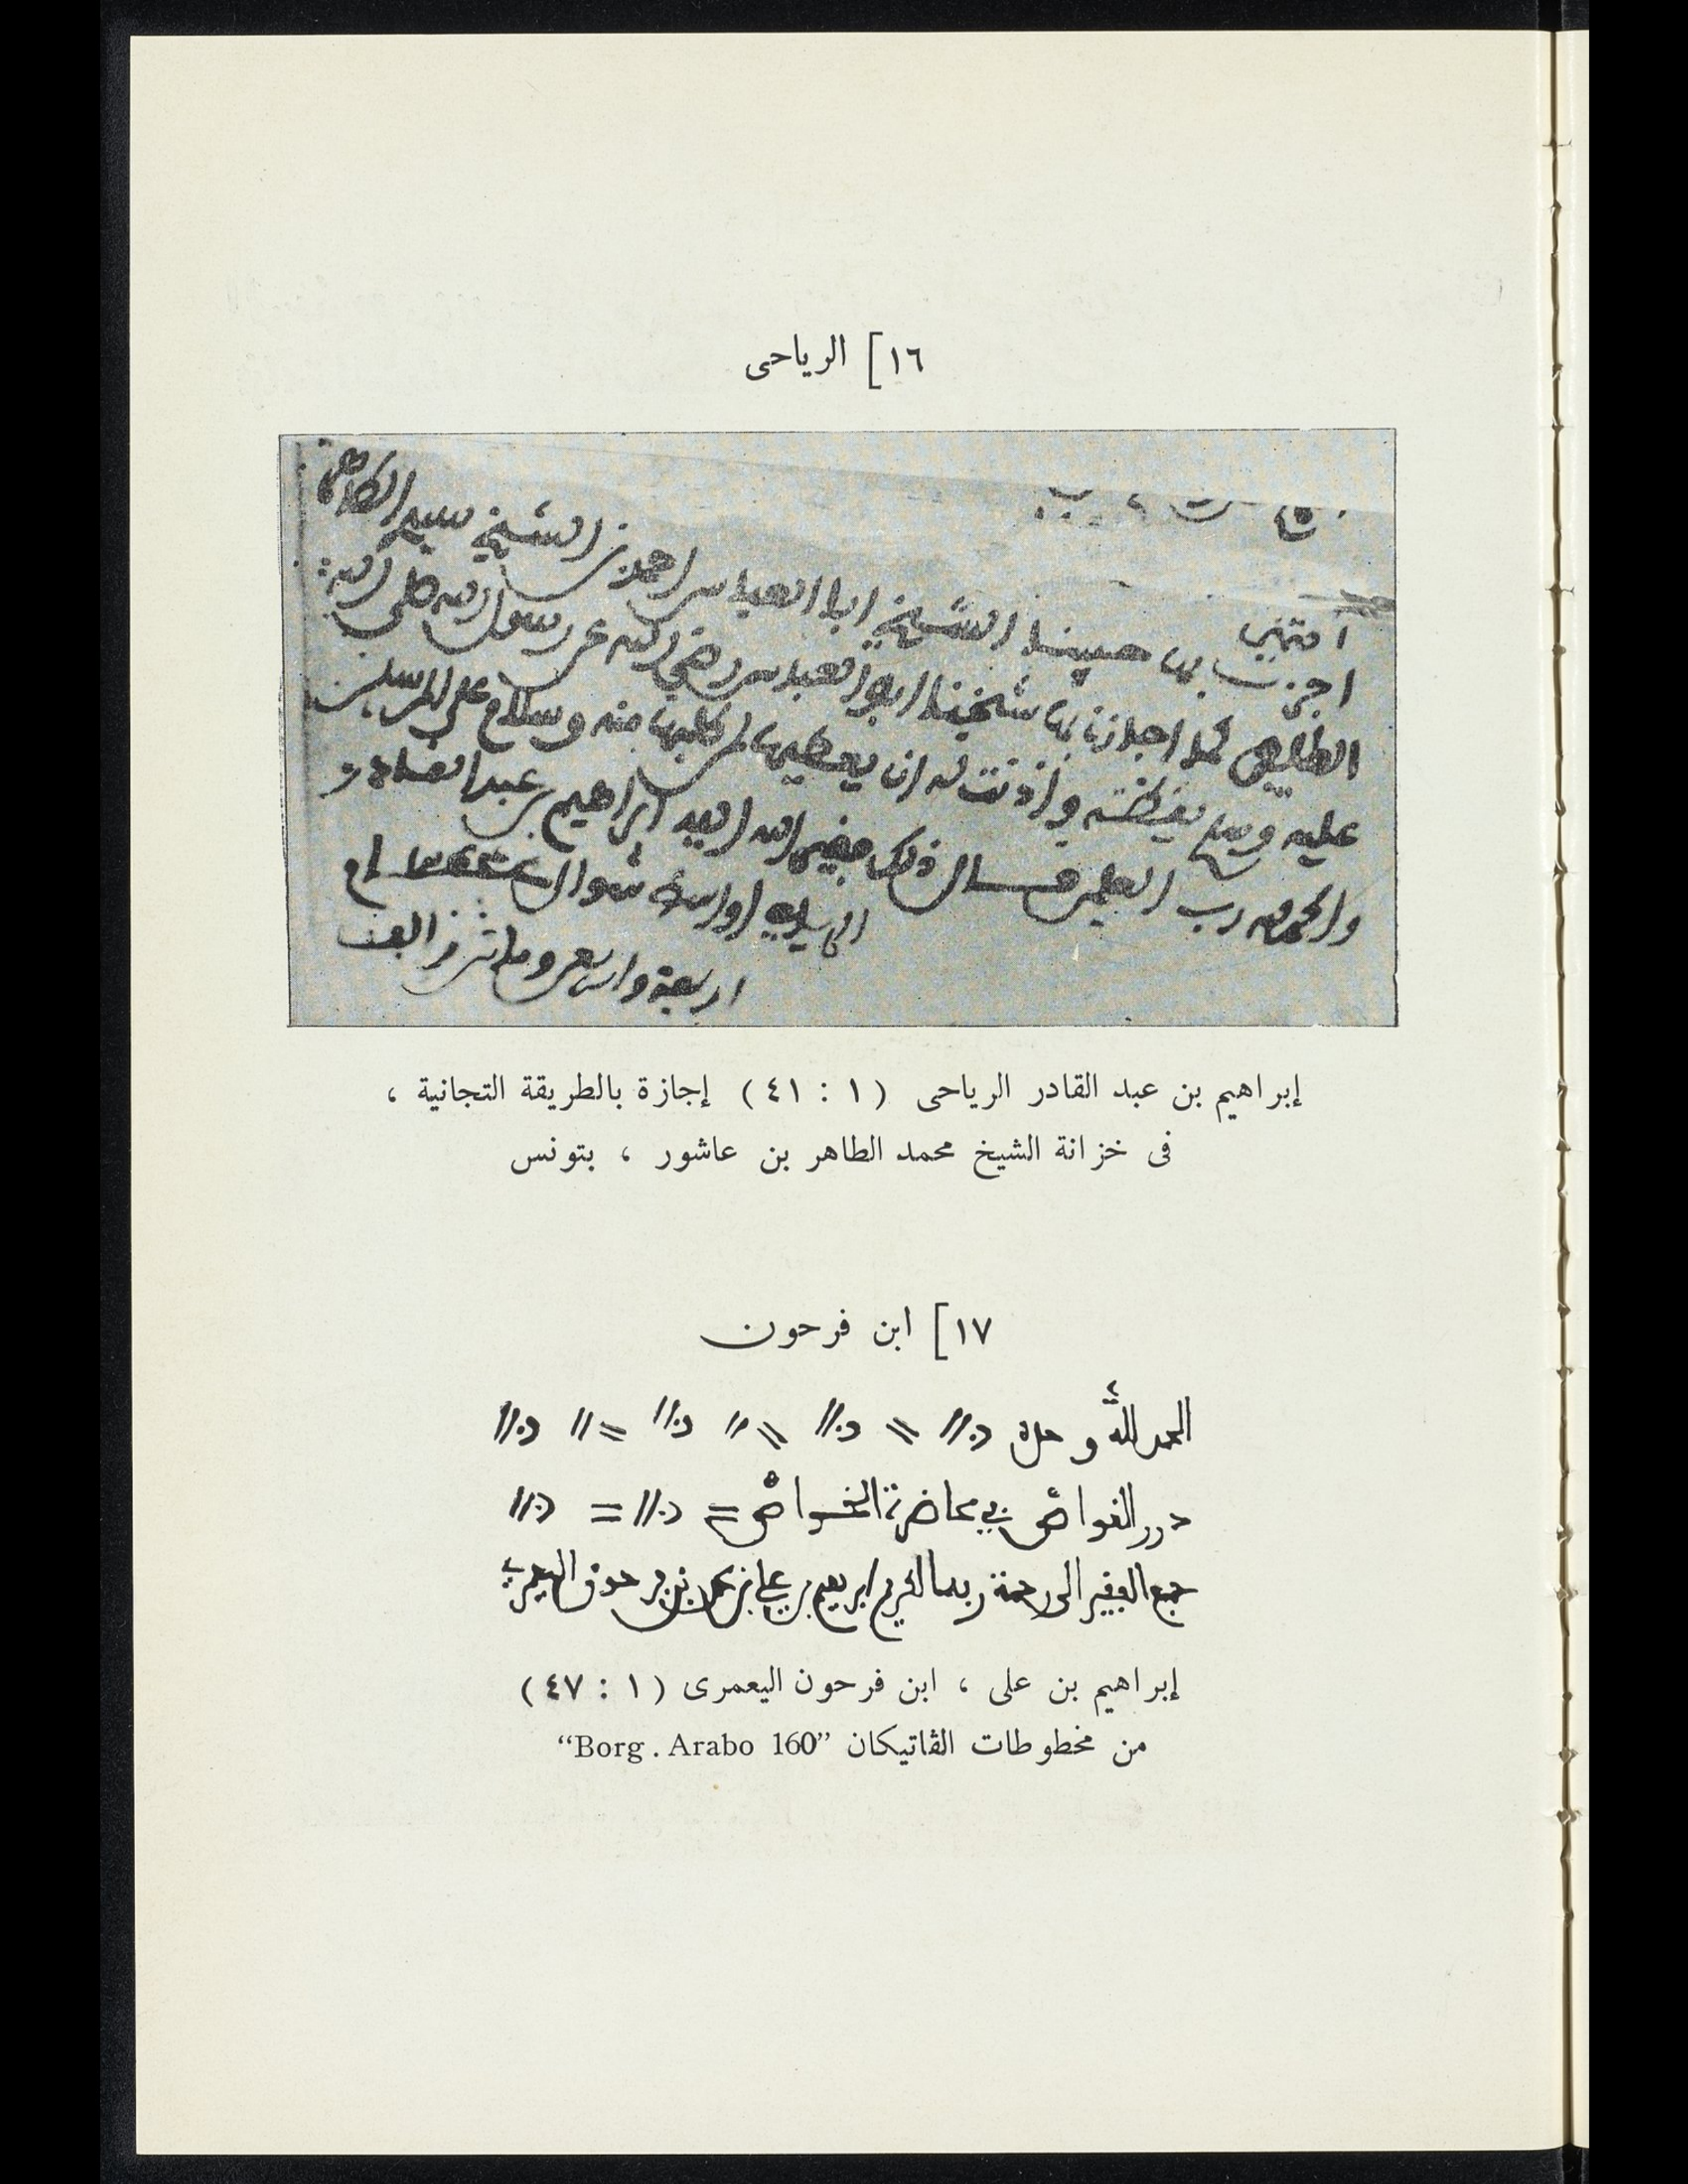 ١٦] الرياحى
انتهى
اجزت بها حبيبنا الشيخ ابا العباس احمد بن الشيخ سيدي الطاهر
اللطايفي كما اجازنا بها شيخنا ابو العباس رضي الله عن رسول الله صلى الله
عليه وسلم يقظة واذنت له ان يعطيها لمن طلبها منه وسلام على المرسلين
والحمد لله رب العلمين قال ذلك فقير الله ابراهيم بن عبد القادر
الرياحي اواسط شوال عام
اربعة واربعين ومائتين والف
إبراهيم بن عبد القادر الرياحى ( ١ : ٤١ ) إجازة بالطريقة التجانية ،
فى خزانة الشيخ محمد الطاهر بن عاشور ، بتونس
١٧] ابن فرحون
الحمد لله وحده
درر الغواص في محاضرة الخواص
جمع الفقير الى رحمة ربه الكريم ابرهيم بن علي بن محمد بن فرحون اليعمري
إبراهيم بن على ، ابن فرحون اليعمرى ( ١ : ٤٧ )
من مخطوطات الڤاتيكان “Borg . Arabo 160”